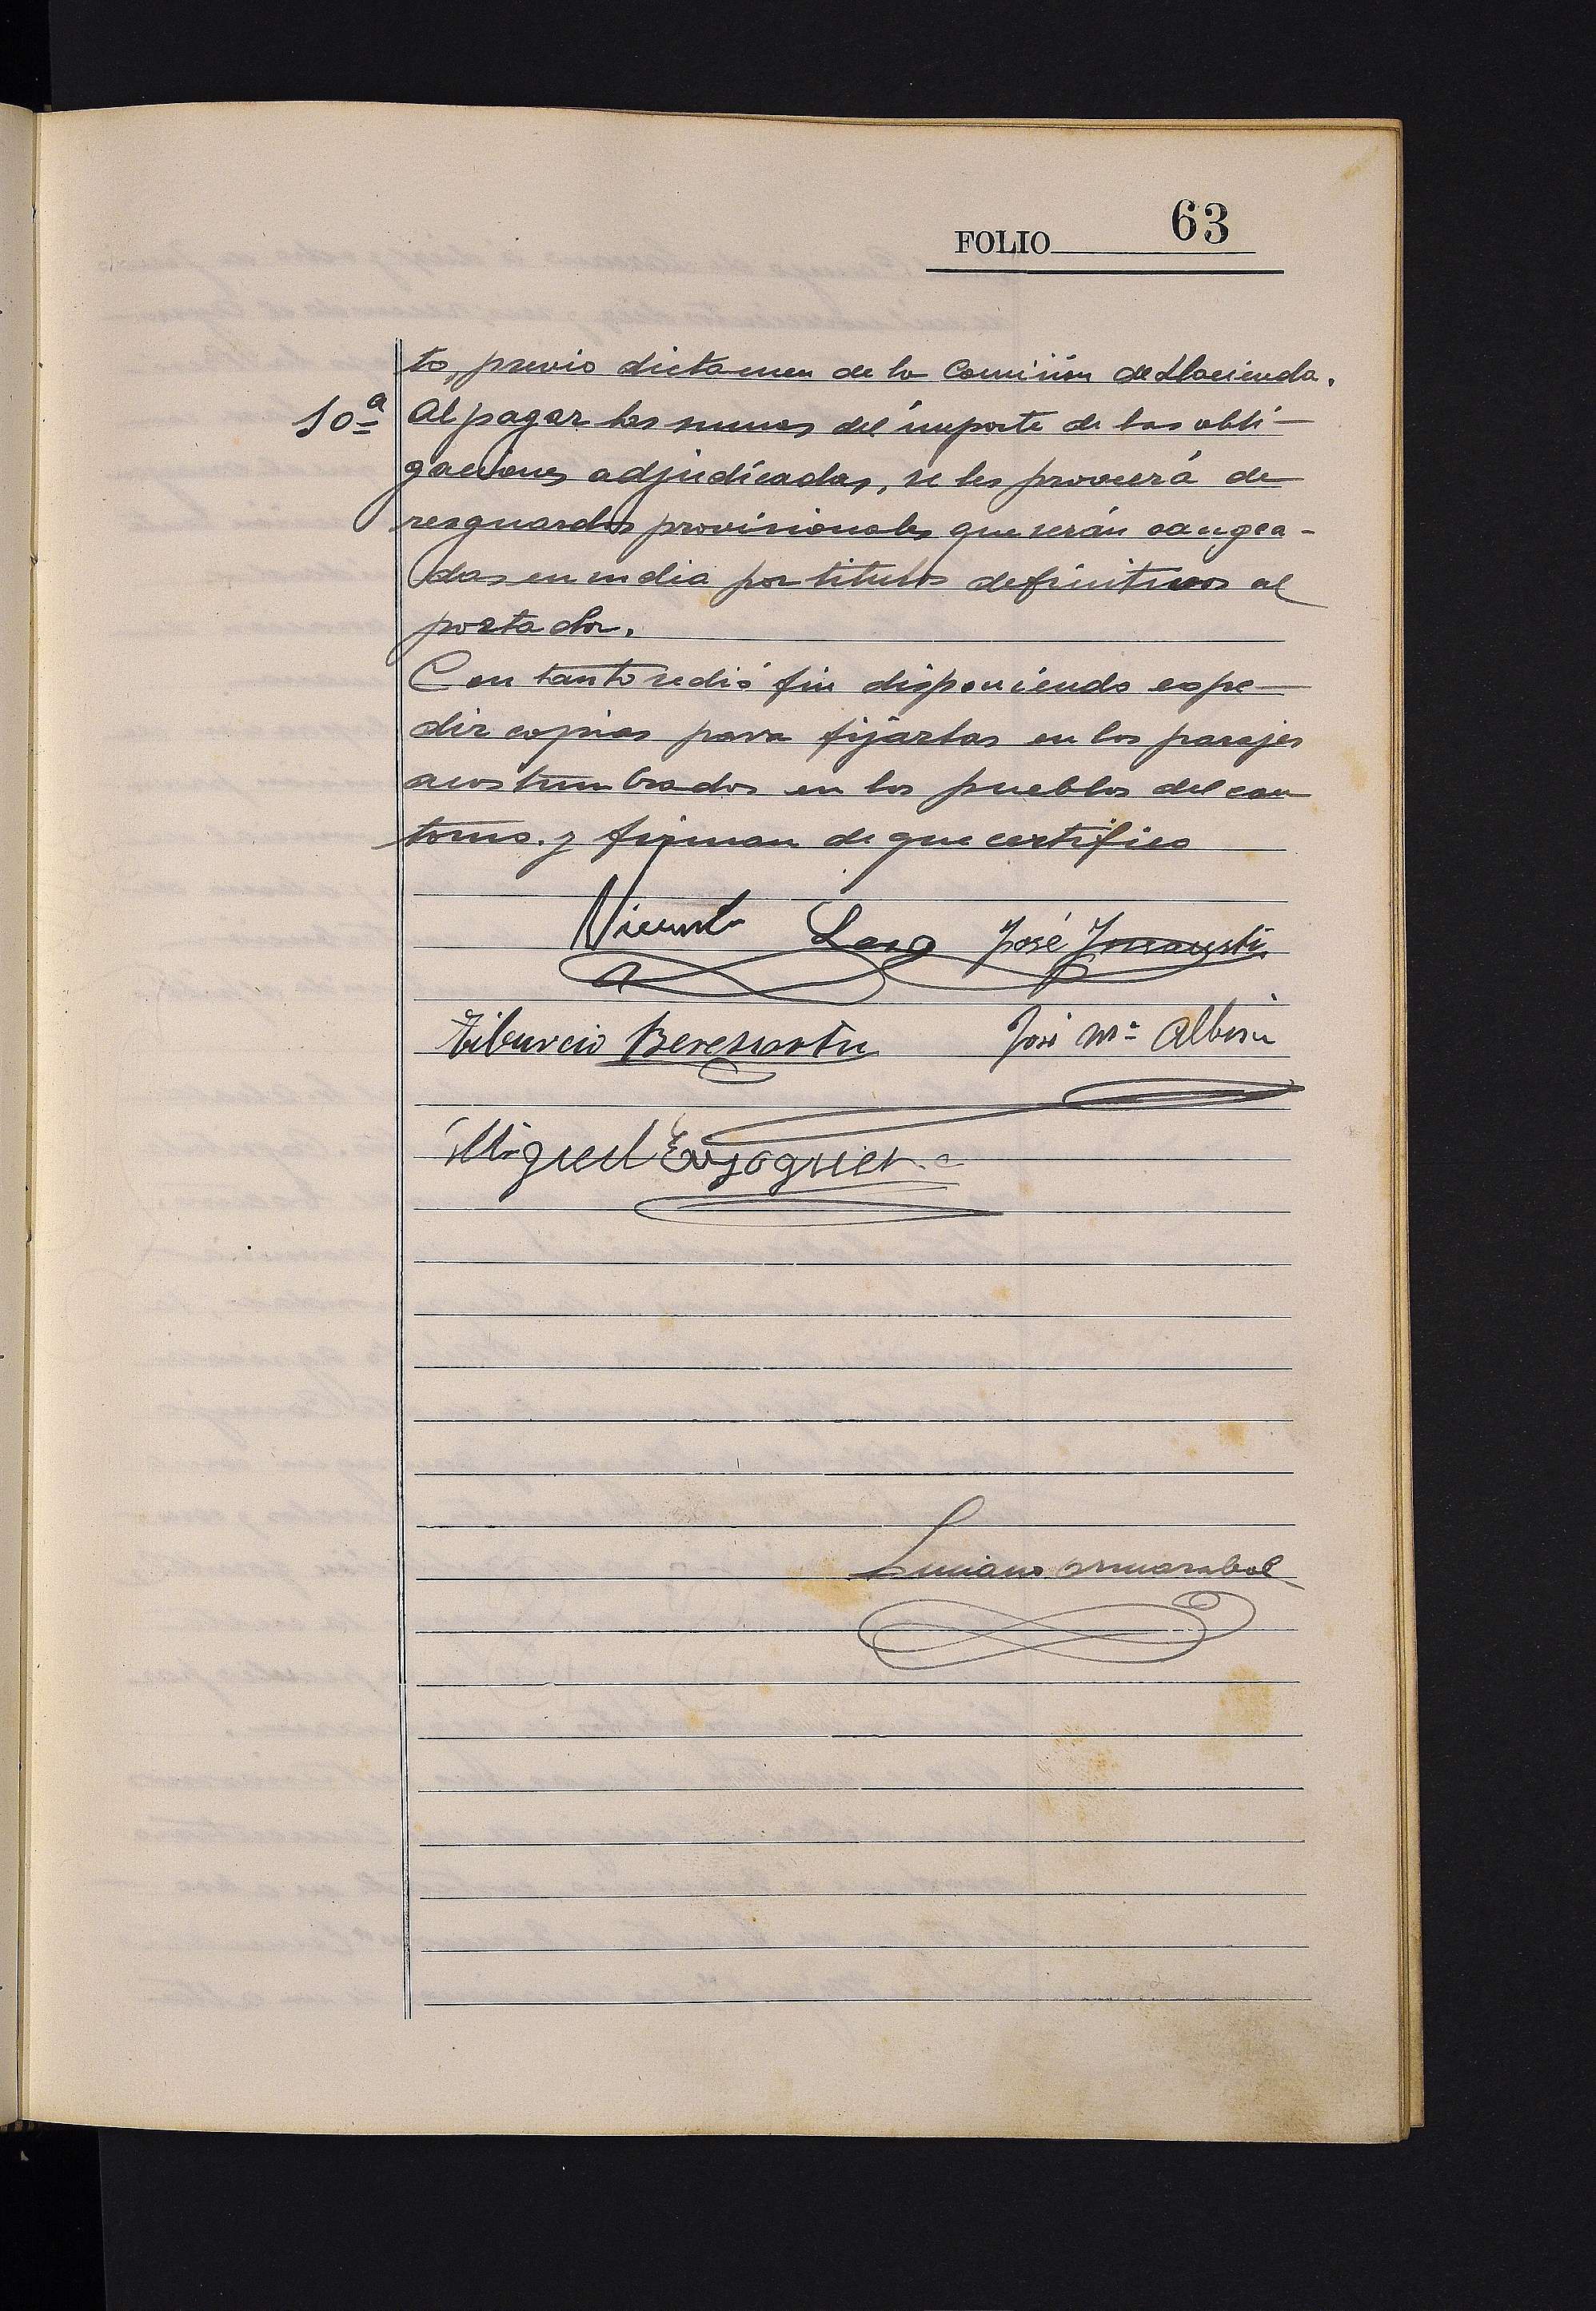 FOLIO 63
to, previo dictamen de la Comisión de Hacienda.
10ª Al pagar las sumas del importe de las obli-
gaciones adjudicadas, se les proveerá de
resguardos provisionales que serán cangea-
das en su dia por titulos definitivos al
portador.
Con tanto se dió fin disponiendo espe-
dir copias para fijarlas en los parajes
acostumbrados en los pueblos del con
torno. y firman de que certifico
Vicente Lasa José Inzausti
Tiburcio Beresiartu José Mª Albisu
Miguel
Luciano